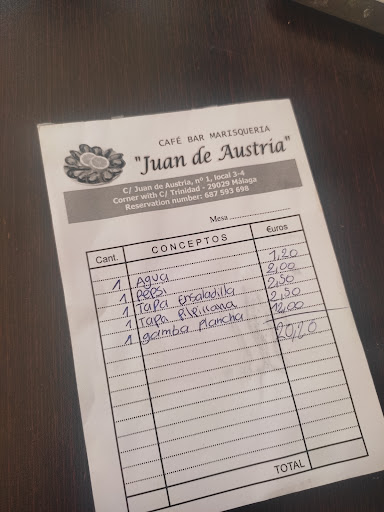 CAFÉ BAR MARISQUERIA
"Juan de Austria"
C/ Juan de Austria, nº 1, local 3-4
Corner with C/ Trinidad - 29029 Málaga
Reservation number: 687 593 698
Mesa
Cant. CONCEPTOS €uros
1 Agua 1,20
1 Pepsi 2,00
1 Tapa Ensaladilla 2,50
1 Tapa Pipirrana 2,50
1 gamba plancha 12,00
20,20
TOTAL